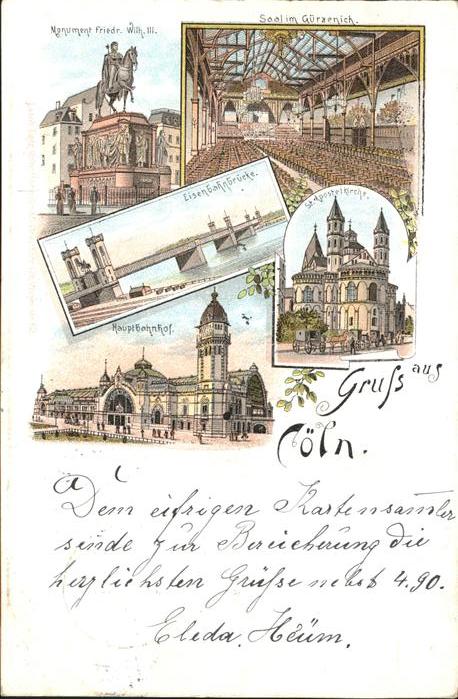 Monument Friedr. Wilh. III.
Saal im Gürzenich.
Eisenbahnbrücke.
St. Apostelkirche.
Hauptbahnhof.
Gruss aus
Cöln.
Dem eifrigen Kartensam̅ler
sende zur Bereicherung die
herzlichsten Grüsse nebst 4.90.